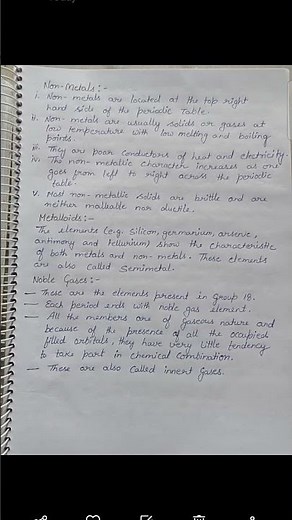 Non-Metals:-
i. Non-metals are located at the top right
hand side of the periodic Table.
ii. Non-metals are usually solids or gases at
low temperature with low melting and boiling
points.
iii. They are poor conductors of heat and electricity.
iv. The non-metallic character increases as one
goes from left to right across the periodic
table.
v. Most non-metallic solids are brittle and are
neither malleable nor ductile.
Metalloids:-
The elements (e.g. Silicon, germanium, arsenic,
antimony and tellurium) show the characteristic
of both metals and non-metals. These elements
are also called Semimetal.
Noble Gases:-
— These are the elements present in Group 18.
— Each period ends with noble gas element.
— All the members are of gaseous nature and
because of the presence of all the occupied
filled orbitals, they have very little tendency
to take part in chemical combination.
— These are also called innert gases.